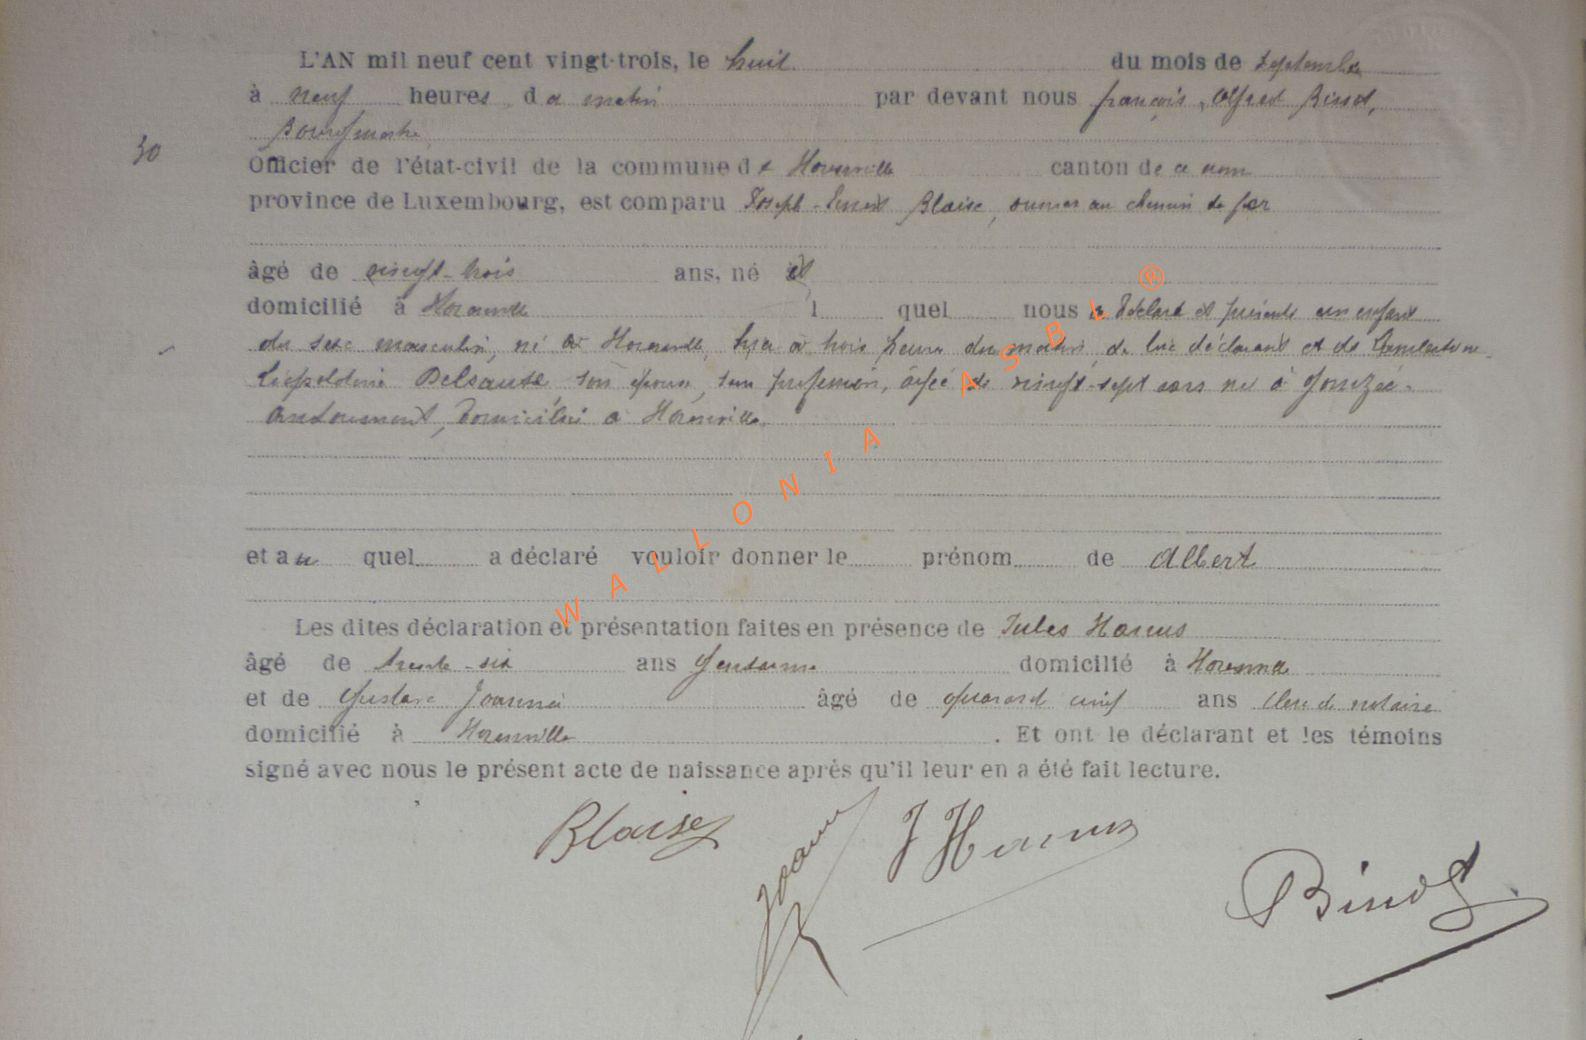 L'AN mil neuf cent vingt-trois, le huit du mois de septembre
à neuf heures du matin par devant nous françois, Alfred Binot,
Bourgmestre
30
Officier de l'état-civil de la commune de Houmville canton de ce nom
province de Luxembourg, est comparu Joseph-Ernest Blaise, ouvrier au chemin de fer
âgé de vingt-trois ans, né et
domicilié à l quel nous a déclaré et présenté un enfant
du sexe masculin, né à hier à trois heures du matin, de lui déclarant et de
Léopoldine Delsaute son épouse, sans profession, âgée de vingt-sept ans née à
domiciliée à
et au quel a déclaré vouloir donner le prénom de Albert
Les dites déclaration et présentation faites en présence de Jules Hanus
âgé de trente-six ans gendarme domicilié à
et de Gustave âgé de quarante neuf ans clerc de notaire
domicilié à . Et ont le déclarant et les témoins
signé avec nous le présent acte de naissance après qu'il leur en a été fait lecture.
Blaise J Hanus
Binot
WALLONIA ASBL ®